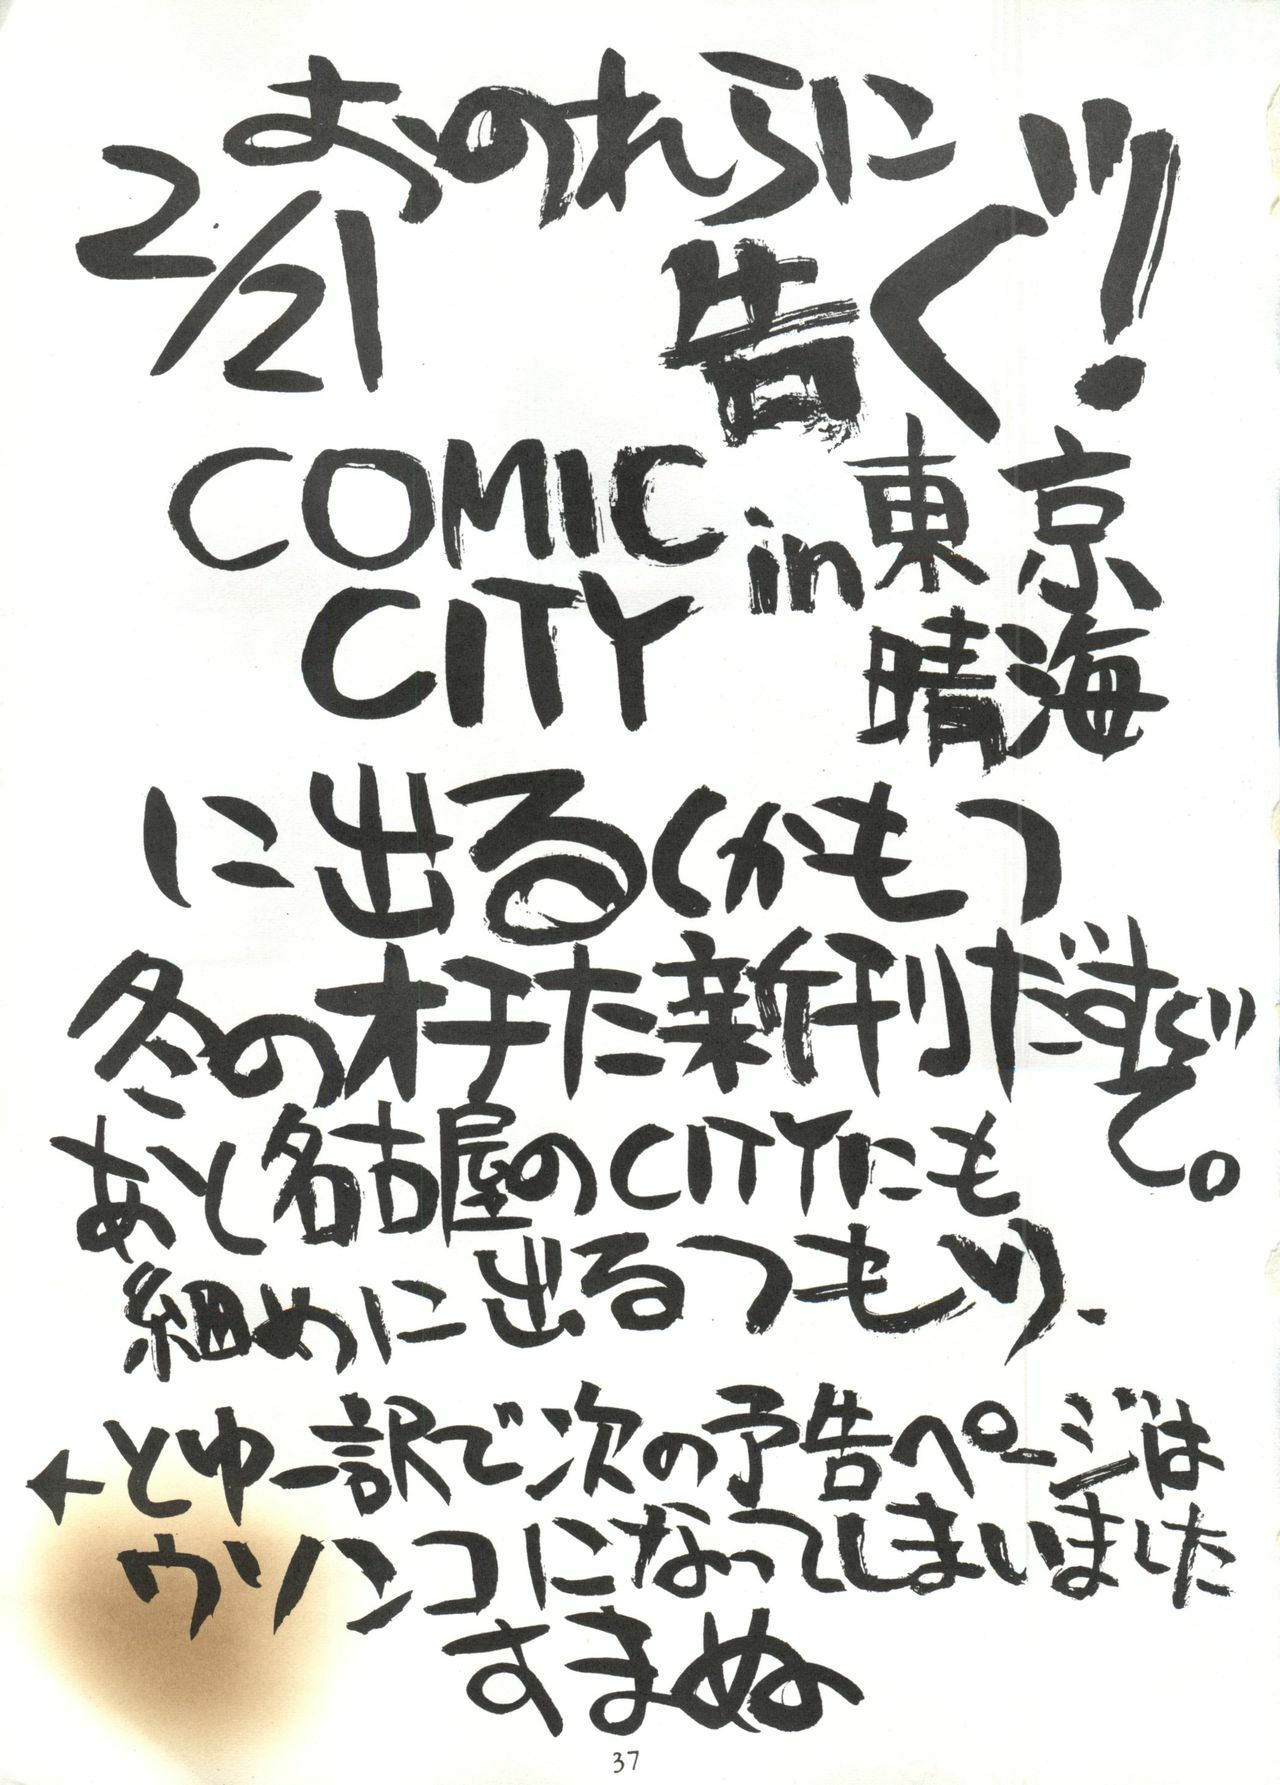 おのれらに
告ぐッ!
2/21
COMIC
CITY
in東京
晴海
に出る(かも)
冬のオチた新刊だすぞ
て。
あと名古屋のCITYにも
組めに出るつもり.
←とゆー訳で次の予告ページは
ウソンコになってしまいました
すまぬ
37